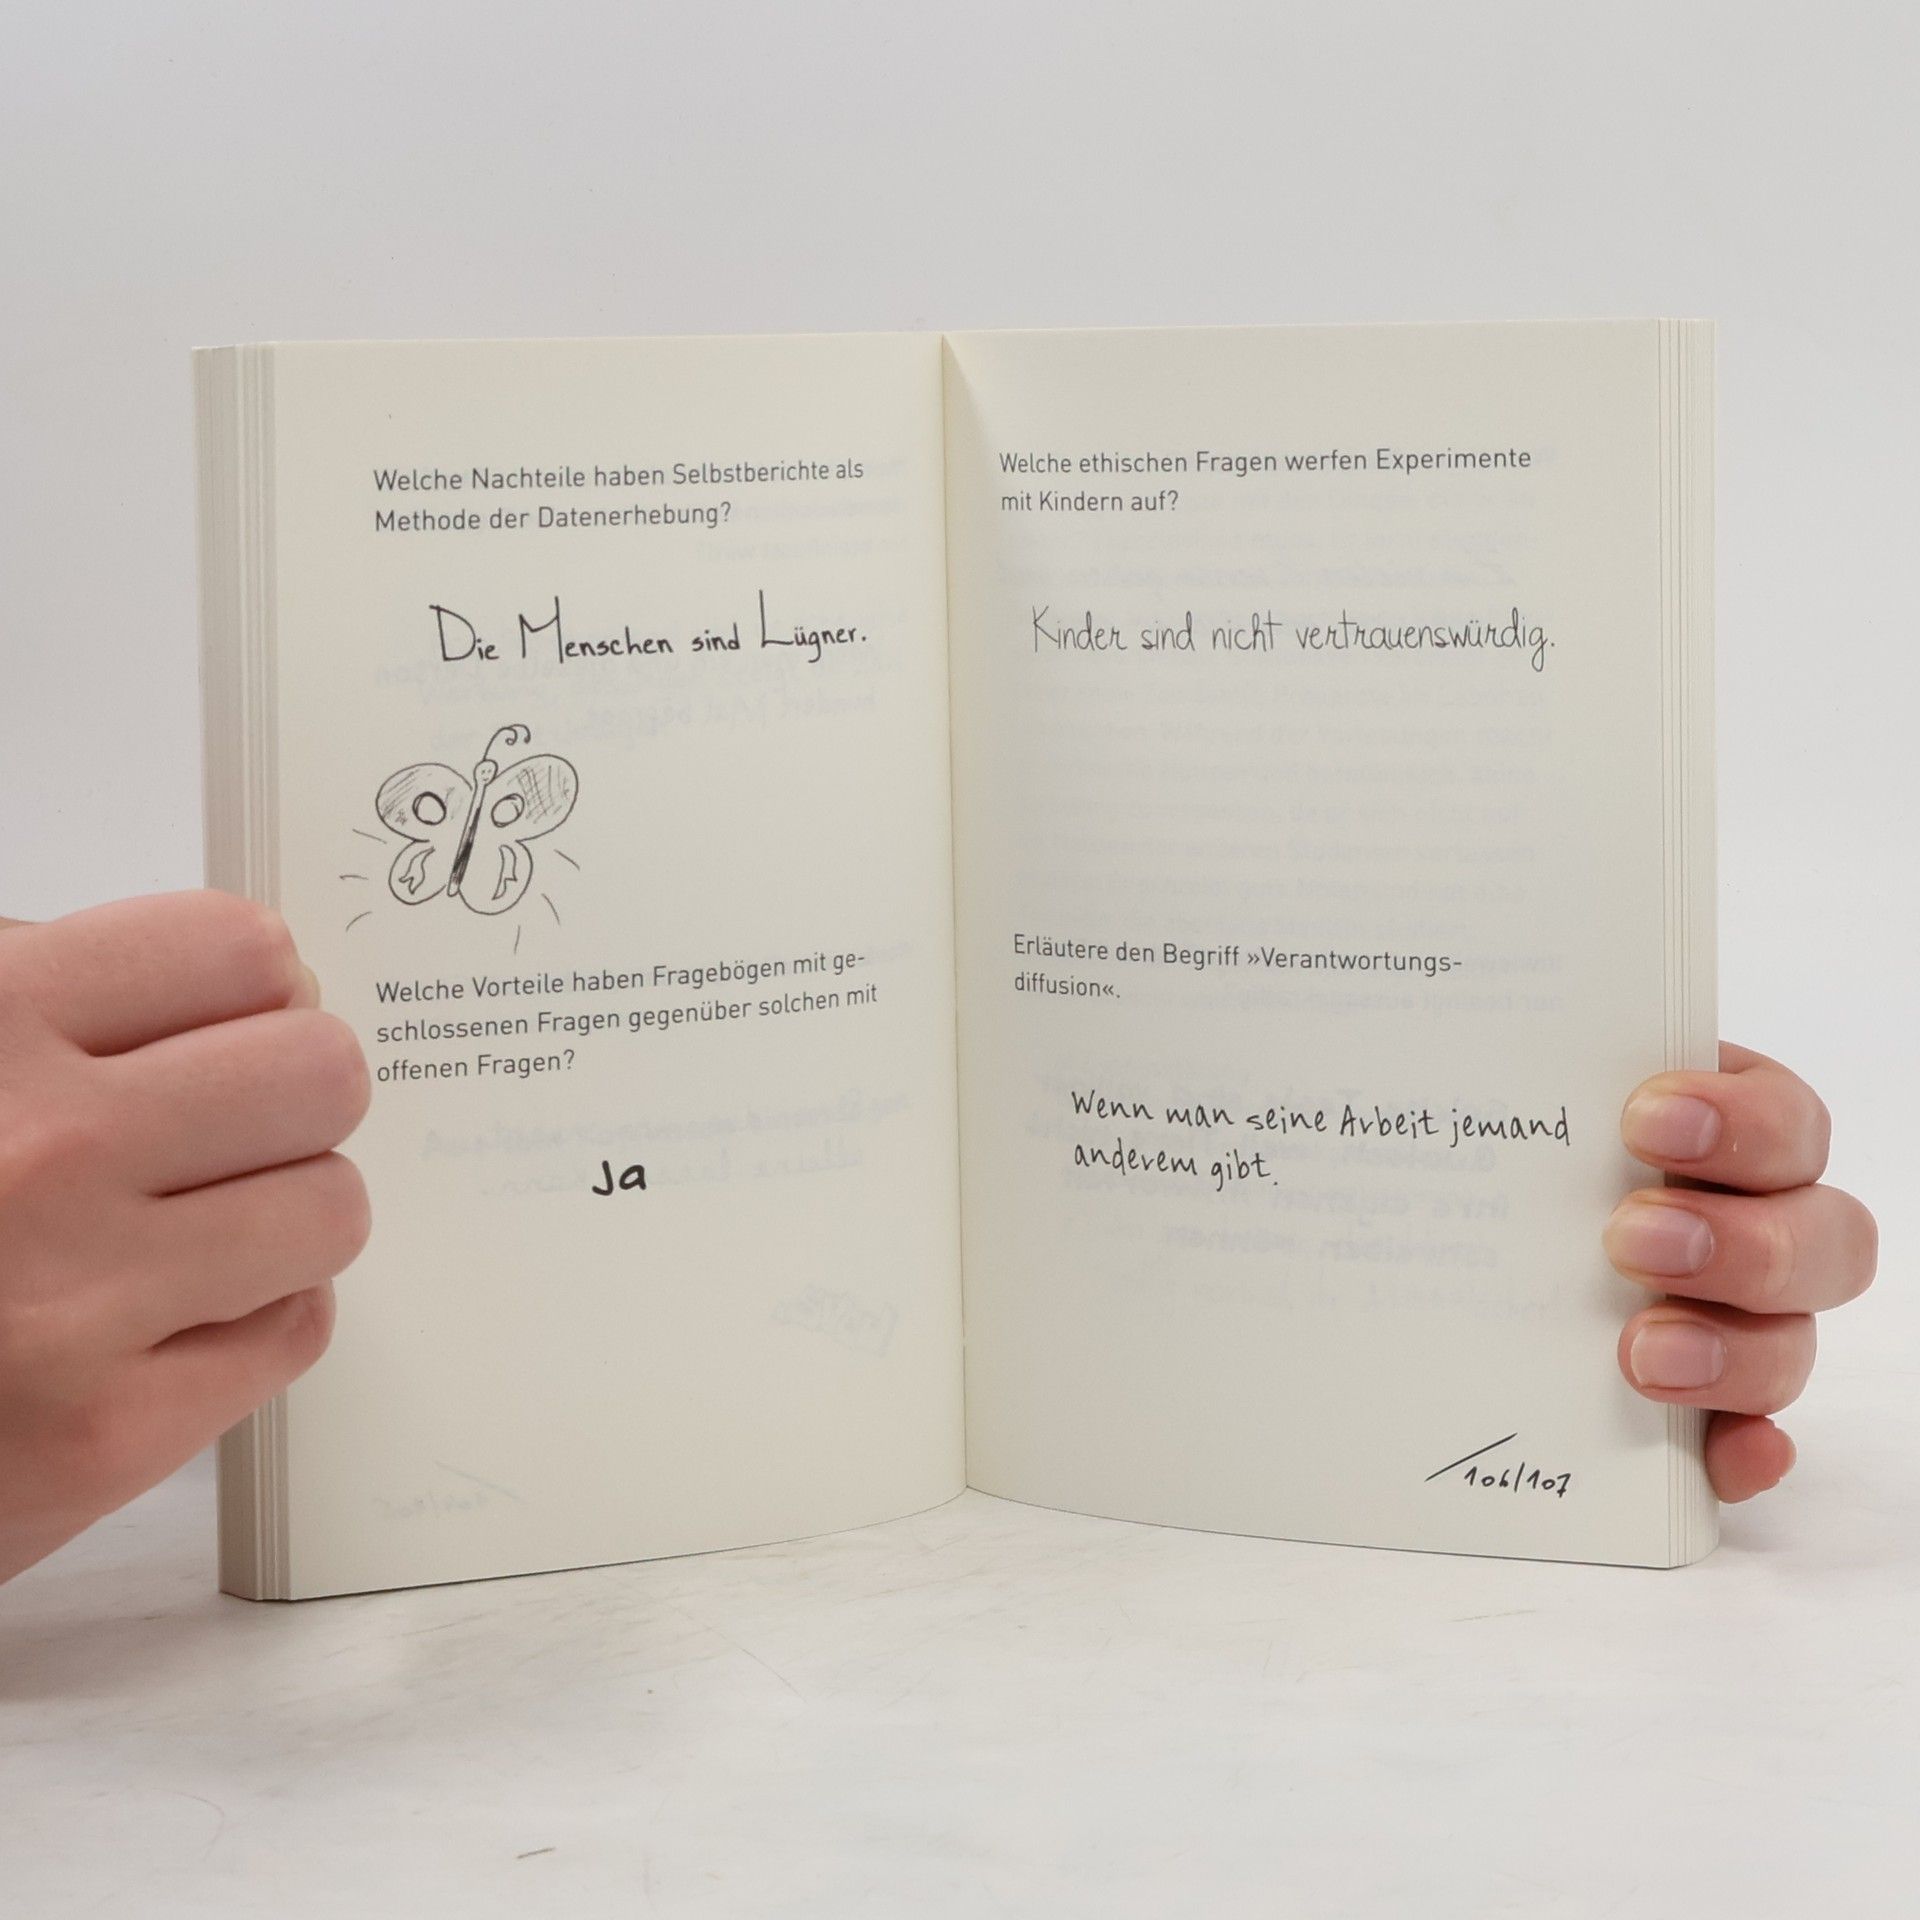 Welche Nachteile haben Selbstberichte als
Methode der Datenerhebung?
Die Menschen sind Lügner.
Welche Vorteile haben Fragebögen mit ge-
schlossenen Fragen gegenüber solchen mit
offenen Fragen?
Ja
Welche ethischen Fragen werfen Experimente
mit Kindern auf?
Kinder sind nicht vertrauenswürdig.
Erläutere den Begriff »Verantwortungs-
diffusion«.
Wenn man seine Arbeit jemand
anderem gibt.
106/107